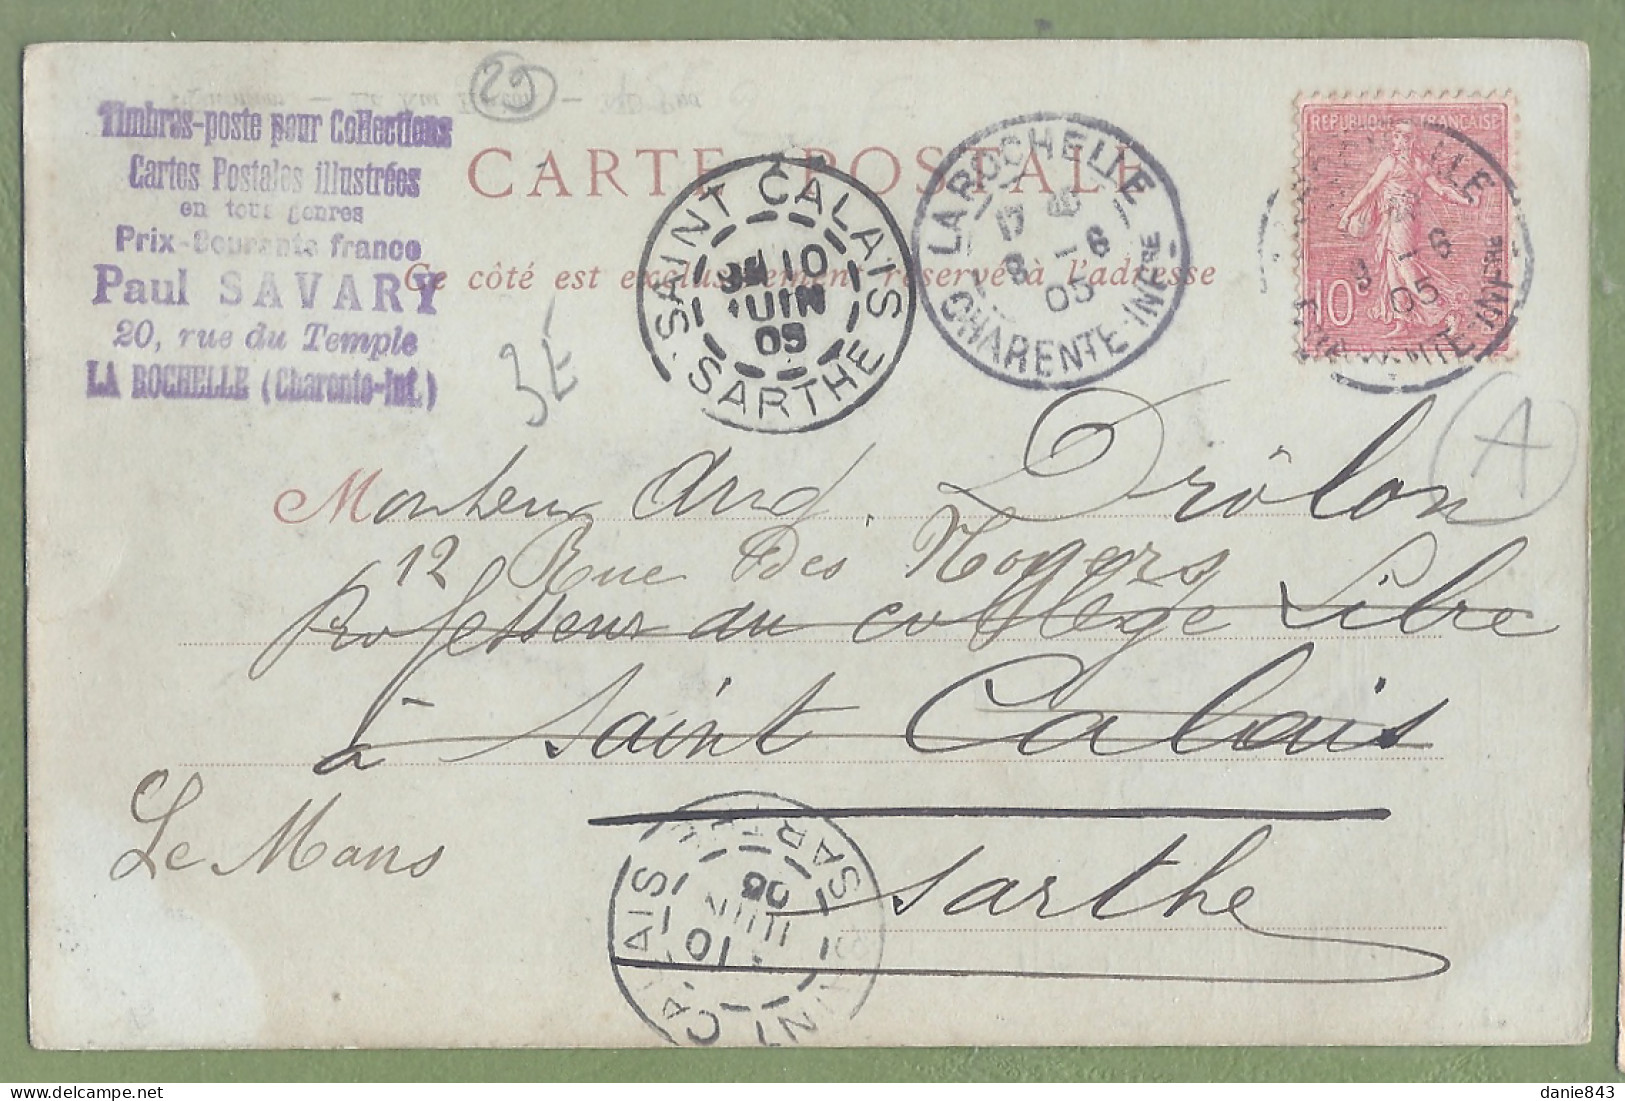 29
Timbres-poste pour Collections
Cartes Postales illustrées
en tous genres
Prix-Courants franco
Paul SAVARY
20, rue du Temple
LA ROCHELLE (Charente-Inf.)
CARTE POSTALE
Ce côté est exclusivement réservé à l'adresse
SAINT CALAIS
10
JUIN
05
SARTHE
LA ROCHELLE
8 -6
05
CHARENTE-INFRE
REPUBLIQUE FRANÇAISE
10c
-6
05
3E
A
Monsieur And. Drôlon
12 Rue des Noyers
Professeur au collège Libre
à Saint Calais
Le Mans
Sarthe
SARTHE
10
05
CALAIS
danie843